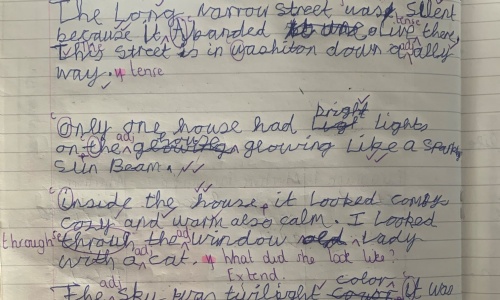 The Long, narrow street was silent
because it abanded olive there, tense
This street is in washiton down a ally adj
way. tense
c bright
Only one house had lights
on the adj glowing Like a
sun Beam.
c Inside the house, it looked comby
cosy and warm also calm. I Looked
through throuh the adj window old adj Lady
with a adj cat. What did she look like?
Extend.
adj color
The sky was twilight it was